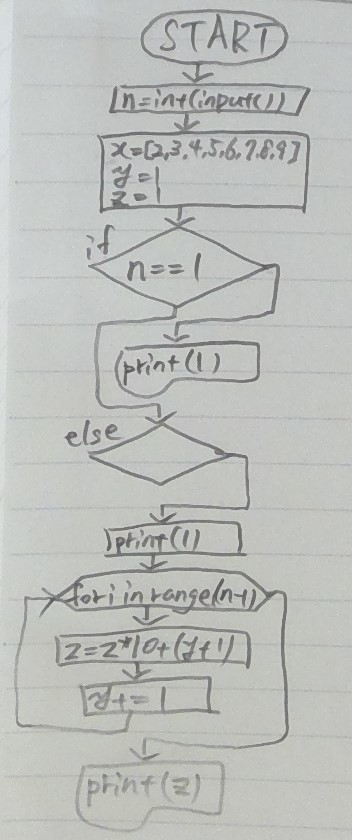 START
n=int(input())
x=[2,3,4,5,6,7,8,9]
y=1
z=1
if
n==1
print(1)
else
print(1)
for i in range(n-1)
z=z*10+(y+1)
y+=1
print(z)